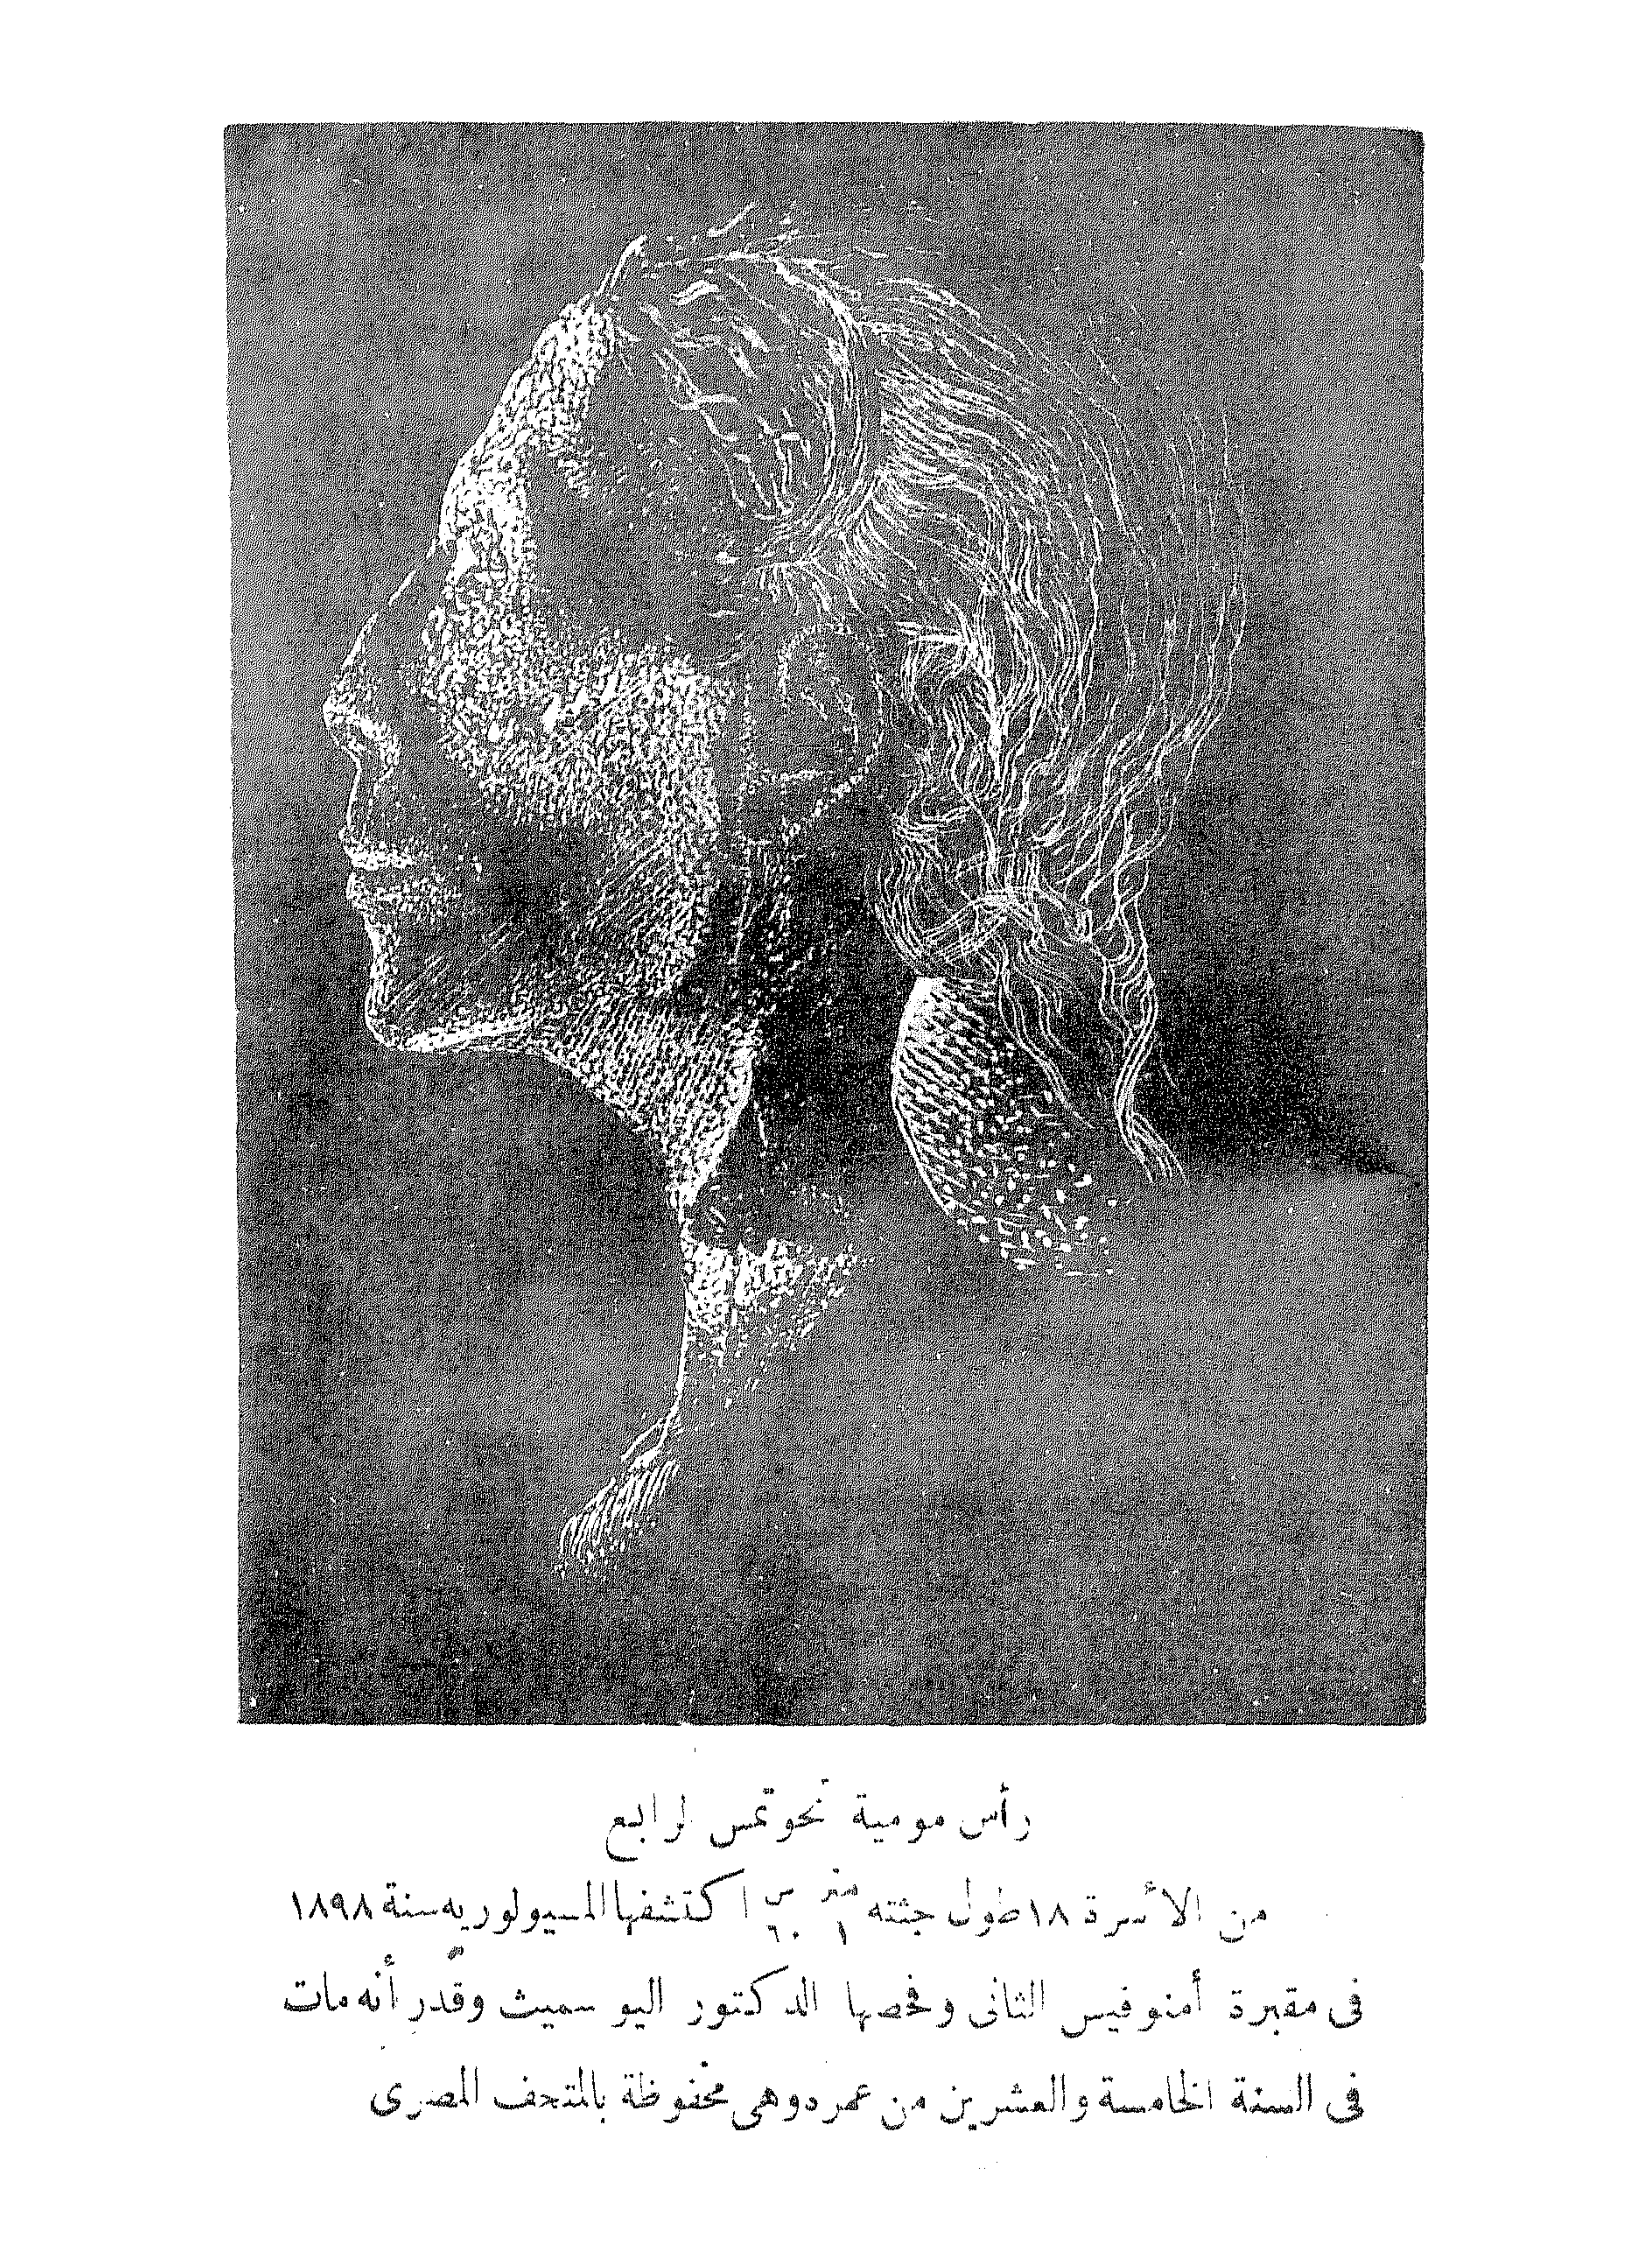 رأس مومية تحوتمس الرابع
من الأسرة ١٨ طول جثته متر ١ س ٦٠ اكتشفها المسيو لوريه سنة ١٨٩٨
فى مقبرة أمنوفيس الثانى وفحصها الدكتور اليوسميث وقدر أنه مات
فى السنة الخامسة والعشرين من عمره وهى محفوظة بالمتحف المصرى